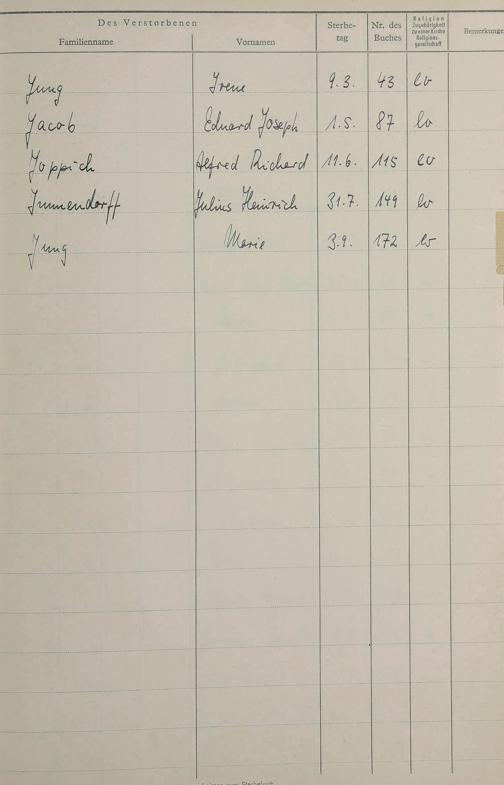 Des Verstorbenen
Familienname Vornamen Sterbe-tag Nr. des Buches Religion Zugehörigkeit zu einer Kirche Religions-gesellschaft
Jung Irene 9.3. 43 ev
Jacob Eduard Joseph 1.5. 87 ev
Joppich Alfred Richard 11.6. 115 ev
Immendorff Julius Heinrich 31.7. 149 ev
Jung Marie 3.9. 172 ev